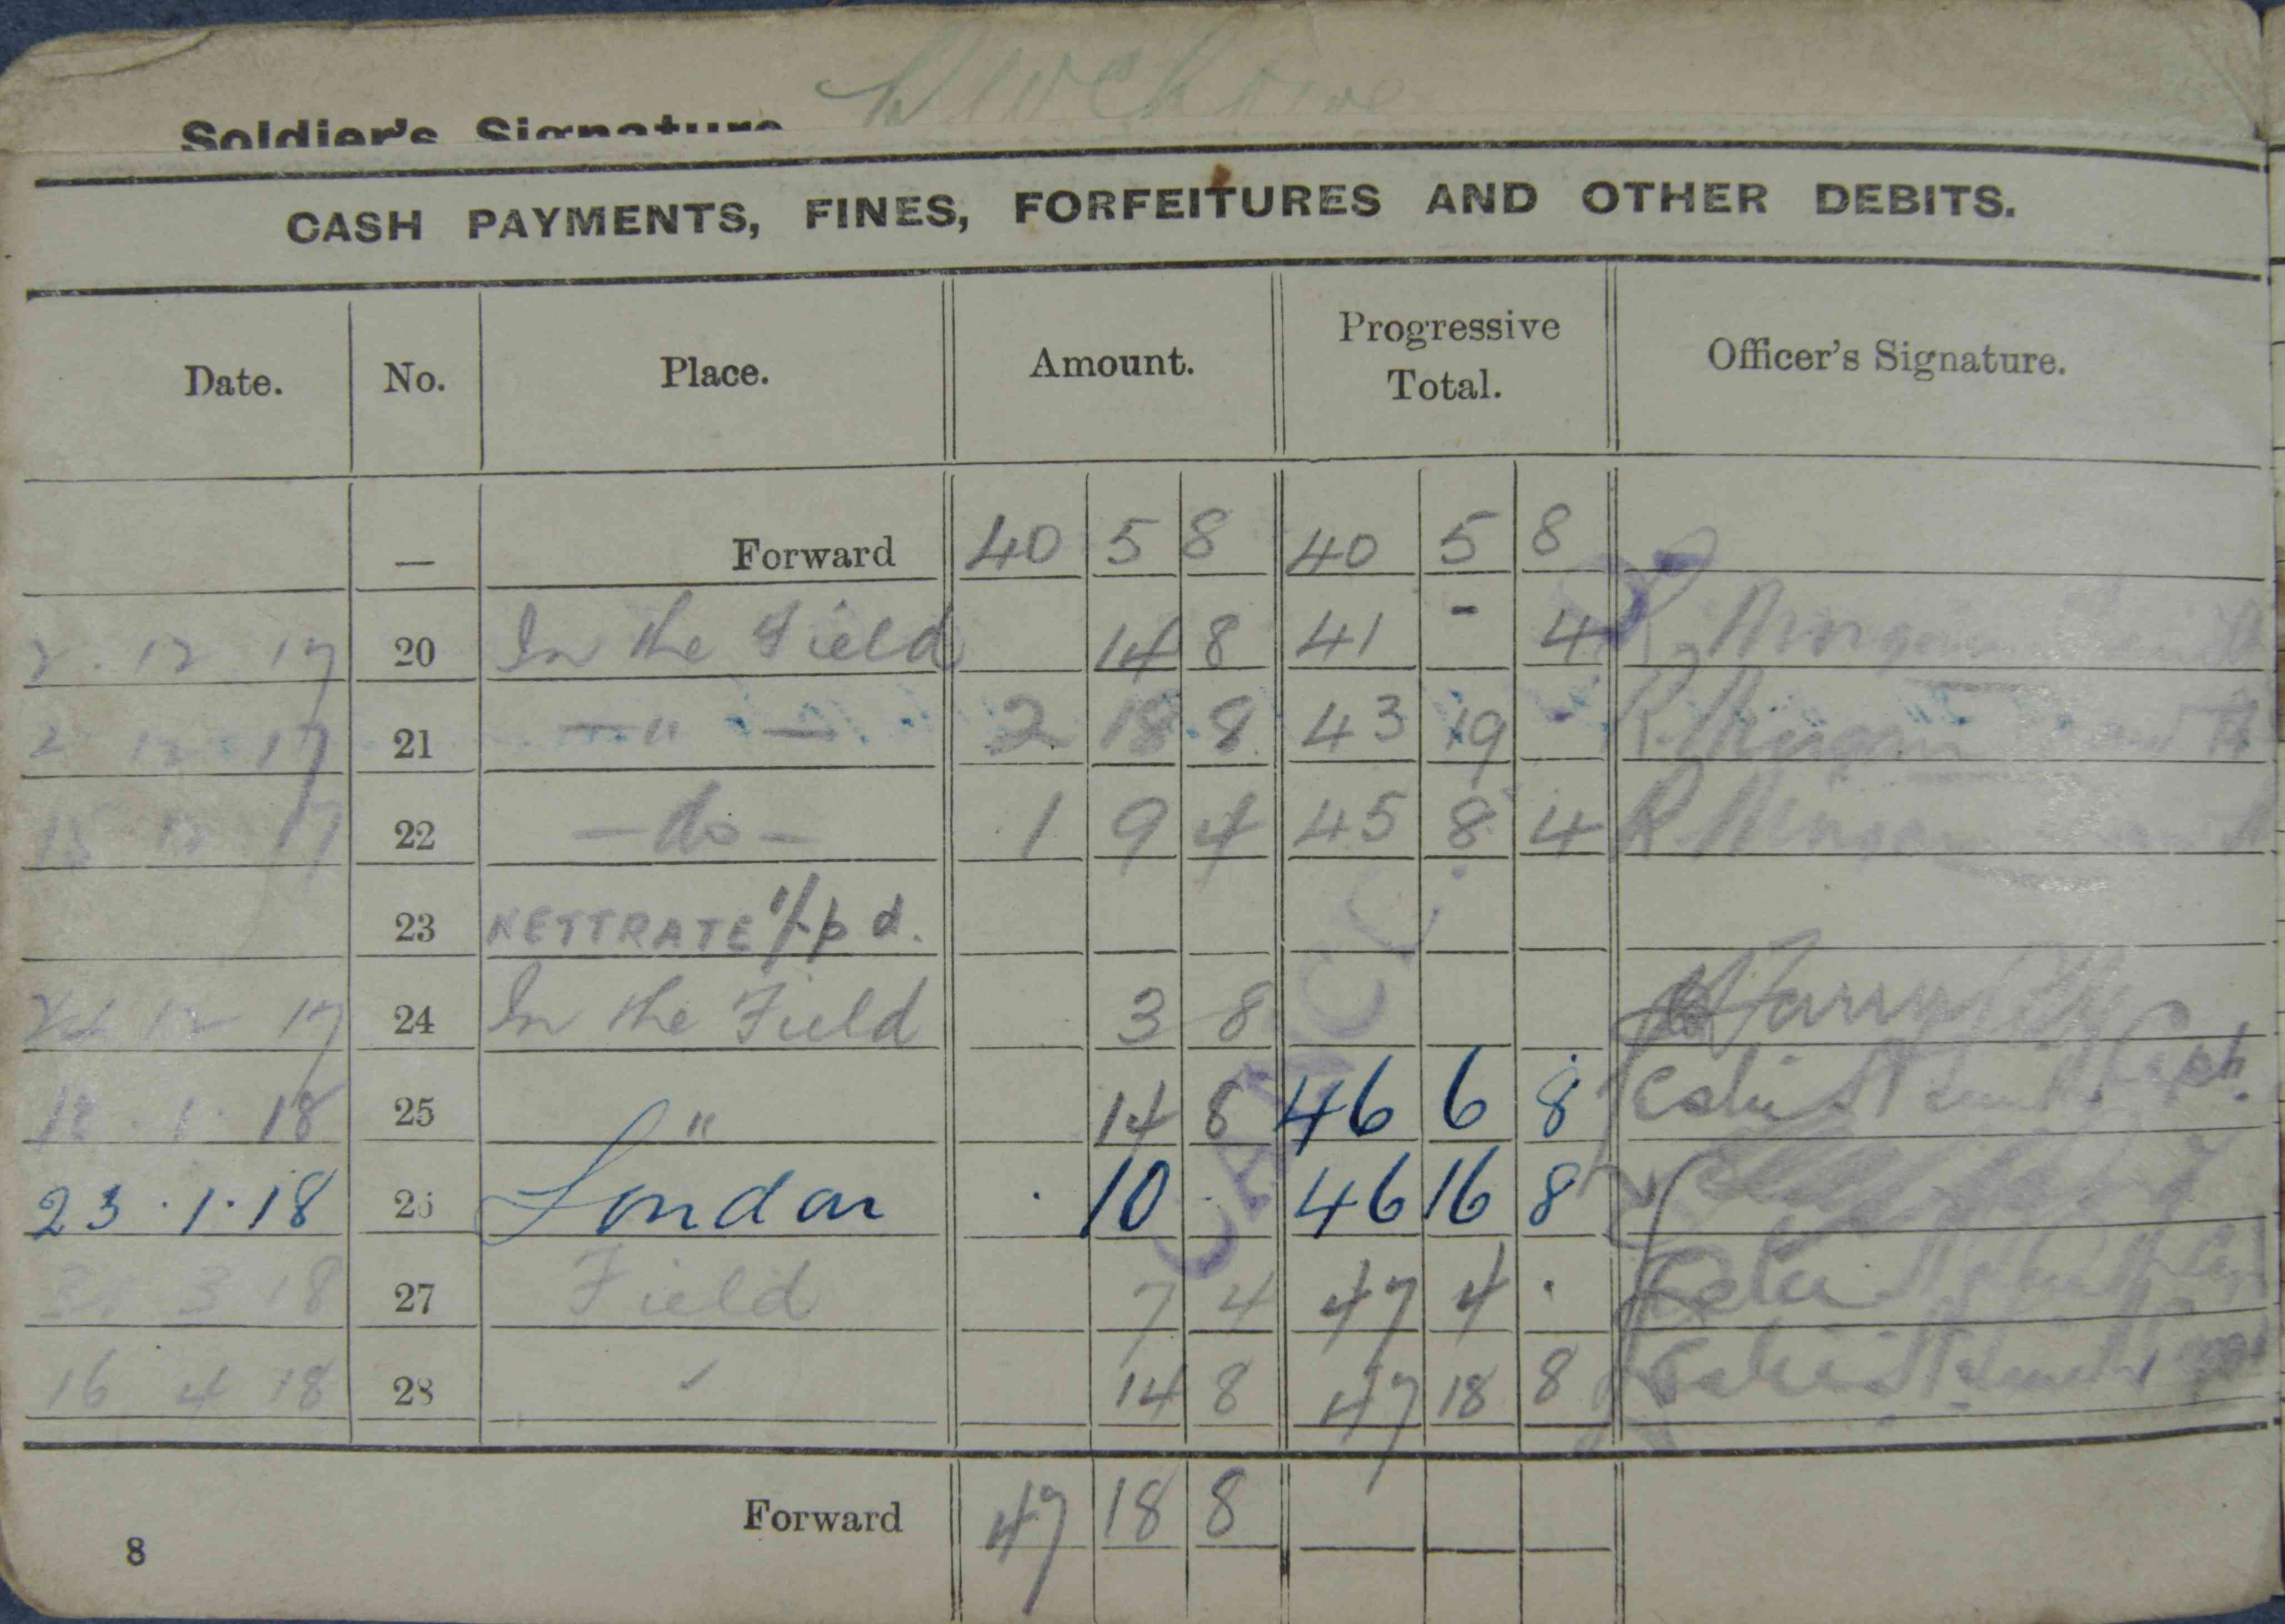 Soldier's Signature
CASH PAYMENTS, FINES, FORFEITURES AND OTHER DEBITS.
Date. No. Place. Amount. Progressive Total. Officer's Signature.
— Forward 40 5 8 40 5 8
2 . 12 17 20 In the Field 14 8 41 - 4
2 12 17 21 — " — 2 18 8 43 19 -
15 12 17 22 — do — 1 9 4 45 8 4
23 NETTRATE 1/- p d.
12 17 24 In the Field 3 8
1 . 18 25 " 14 8 46 6 8 Capt.
23 . 1 . 18 26 London . 10 . 46 16 8
3 18 27 Field 7 4 47 4 .
16 4 18 28 " 14 8 47 18 8
CANC
Forward 47 18 8
8